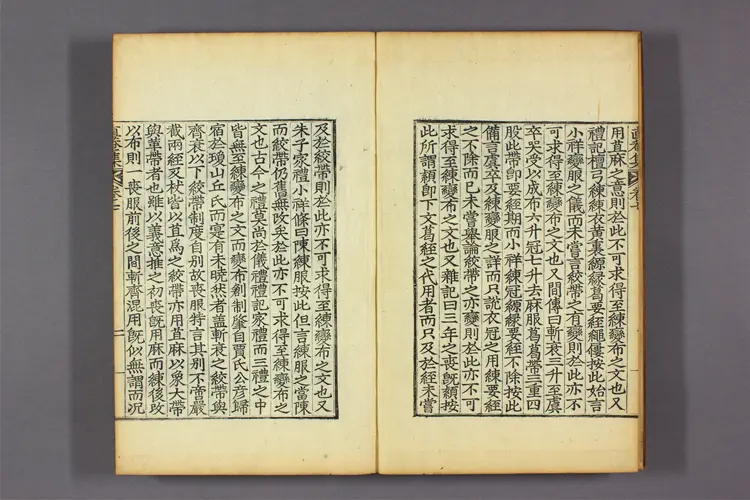 用苴麻之意則於此不可求得至練變布之文也又
禮記檀弓練練衣黃裏縓緣葛要絰繩屨按此始言
小祥變服之儀而未嘗言絞帶之有變則於此亦不
可求得至練變布之文也又間傳曰斬衰三升至虞
卒哭受以成布六升冠七升去麻服葛葛帶三重四
股此帶卽要絰期而小祥練冠縓緣要絰不除按此
備言虞卒及練變服之詳而只說衣冠之用練要絰
之不除而已未嘗擧論絞帶之亦變則於此亦不可
求得至練變布之文也又雜記曰三年之喪旣顈按
此所謂顈卽下文葛絰之代用者而只及於絰未嘗
及於絞帶則於此亦不可求得至練變布之文也又
朱子家禮小祥條曰陳練服按此但言練服之當陳
而絞帶仍舊無改矣於此亦不可求得至練變布之
文也古今之禮莫尚於儀禮禮記家禮而三禮之中
皆無至練變布之文而變布創制肇自賈氏公彦歸
宿於瓊山丘氏而寔有未曉然者盖斬衰之絞帶與
齊衰以下絞帶制度自別故喪服特言其別不啻嚴
截兩絰及杖皆以苴爲之絞帶亦用苴麻以象大帶
與革帶者也雖以義意推之初喪旣用麻而練後改
以布則一喪服前後之間斬齊混用旣似無謂而況